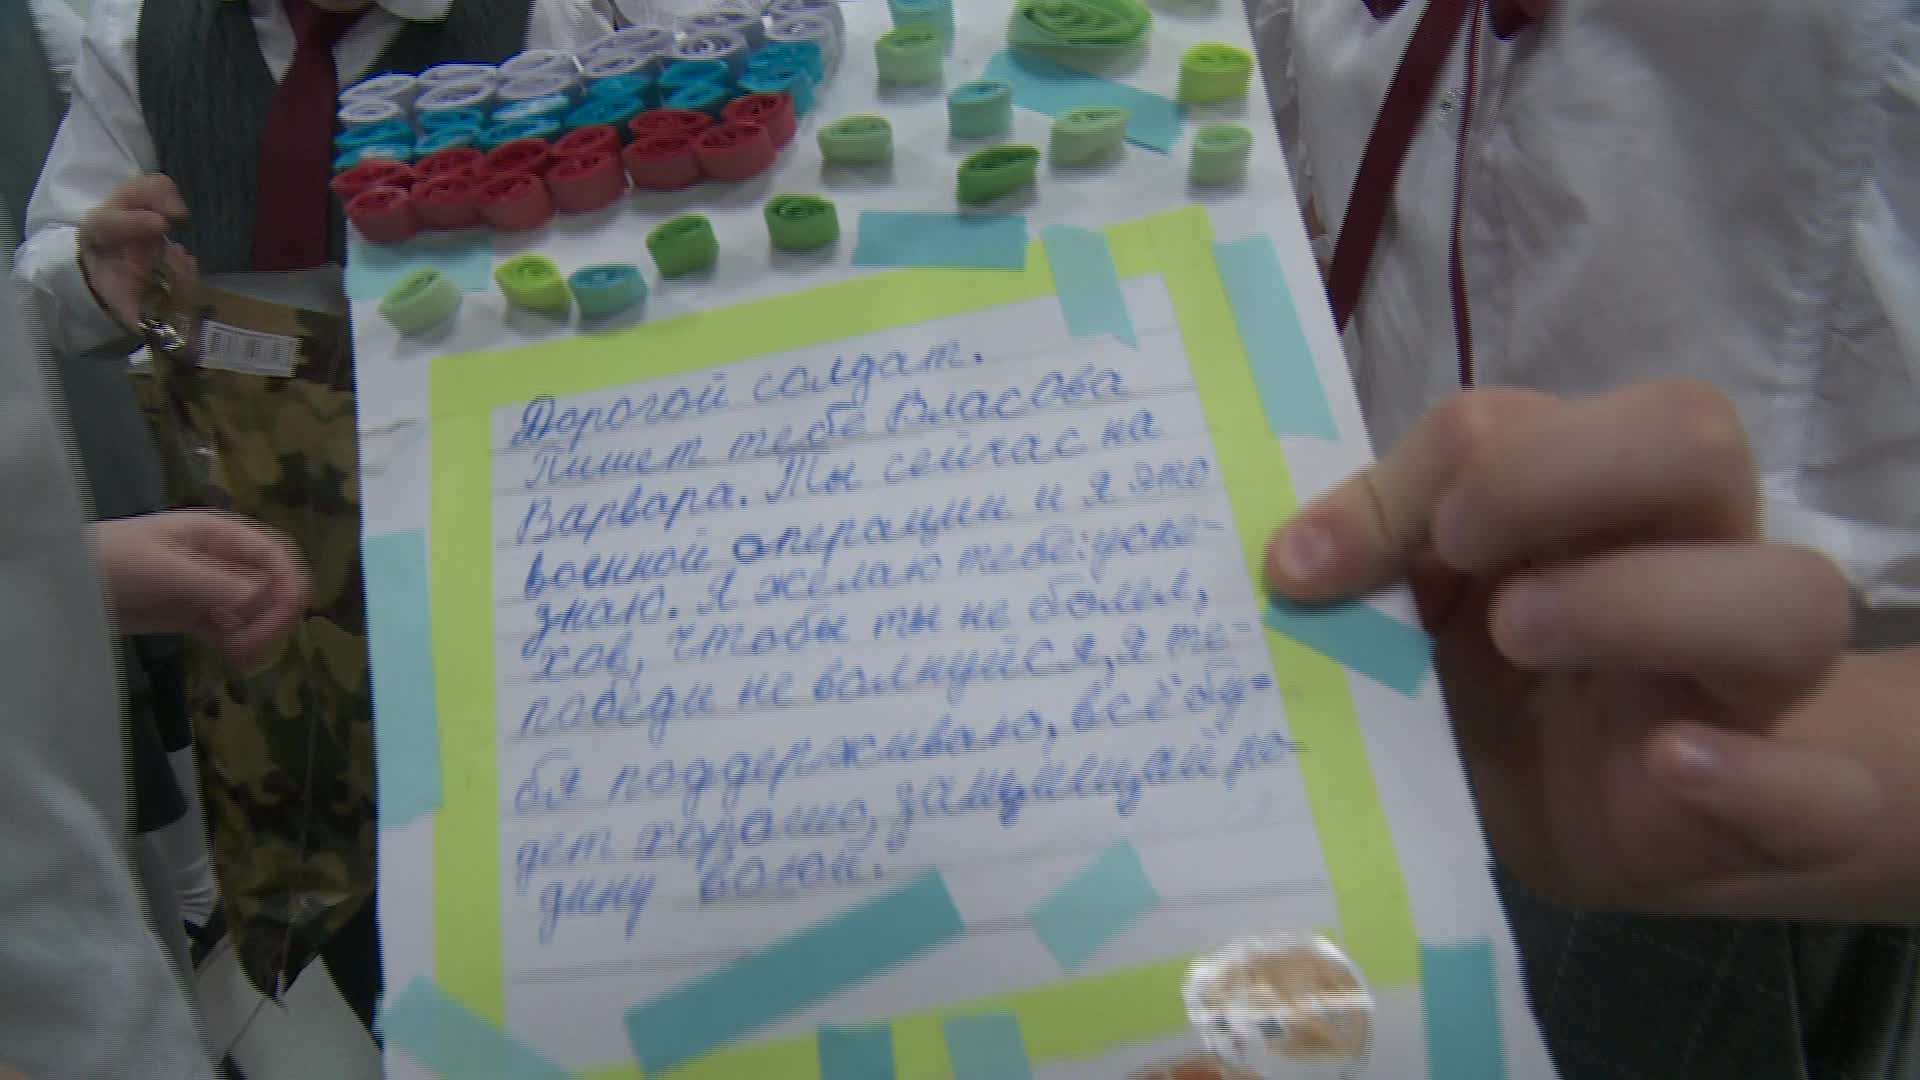 Дорогой солдат.
Пишет тебе Власова
Варвара. Ты сейчас на
военной операции и я это
знаю. Я желаю тебе: успе-
хов, чтобы ты не болел,
победи не волнуйся, я те-
бя поддерживаю, всё бу-
дет хорошо, защищай ро-
дину